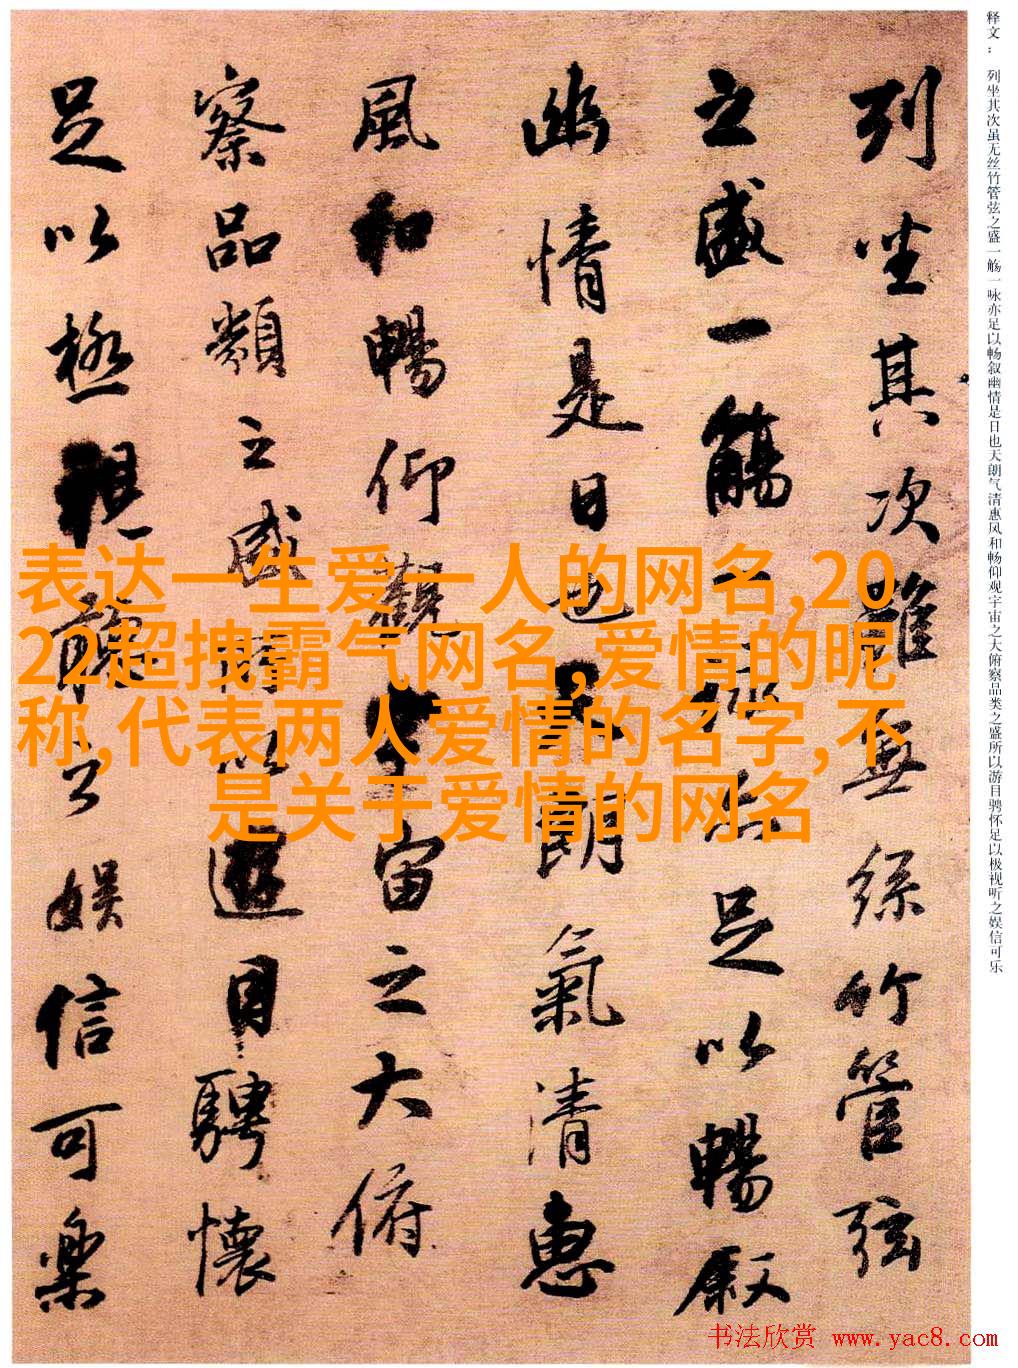 释文： 列坐其次虽无丝竹管弦之盛一觞一咏亦足以畅叙幽情是日也天朗气清惠风和畅仰观宇宙之大俯察品类之盛所以游目骋怀足以极视听之娱信可乐
列坐其次雖無絲竹管弦
之盛一觴一詠亦足以暢叙
幽情是日也天朗氣清惠
風和暢仰觀宇宙之大俯
察品類之盛所以遊目騁懷
足以極視聽之娱信可樂
表达一生爱一人的网名,20
22超拽霸气网名,爱情的昵
称,代表两人爱情的名字,不
是关于爱情的网名
书法欣赏 www.yac8.com